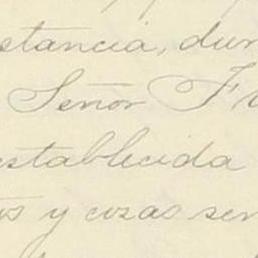 stancia, dur
Señor F
establecida
os y cosas ser